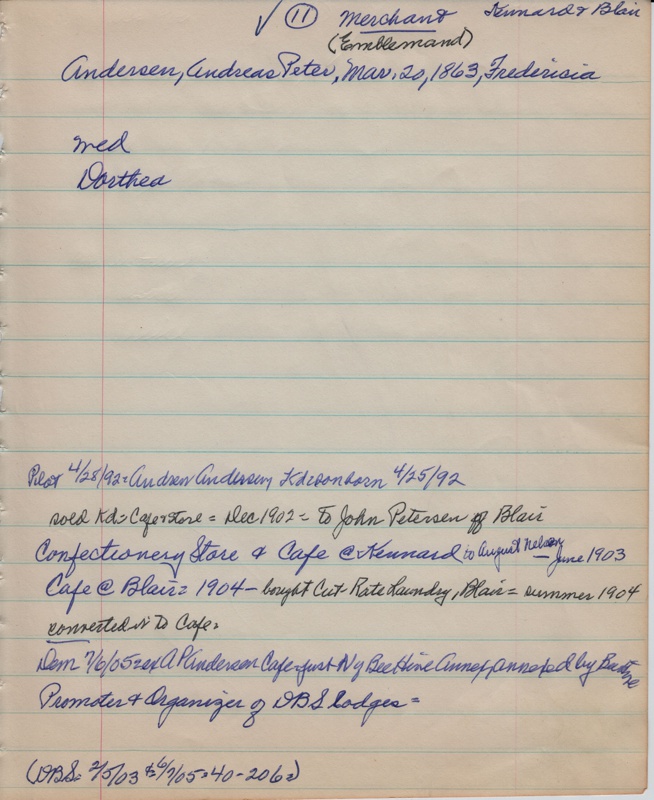 ✓ (11) Merchant Kennard & Blair
(Emblemand)
Andersen, Andreas Peter, Mar. 20, 1863, Fredericia
med
Dorthea
Pilot 4/28/92 = Andrew Andersen, Kd son born 4/25/92
sold Kd = Cafe & store = Dec. 1902 = to John Petersen of Blair
Confectionery Store & Cafe @ Kennard to August Nelson — June 1903
Cafe @ Blair = 1904 — bought Cut-Rate Laundry, Blair = summer 1904
converted it to Cafe.
Dem 7/6/05 = ex A P Andersen Cafe = just N of Bee Hive Annex, annexed by Bee Hive
Promoter & Organizer of DBS lodges =
(DBS = 2/5/03 & 6/7/05 = 40 - 206 =)